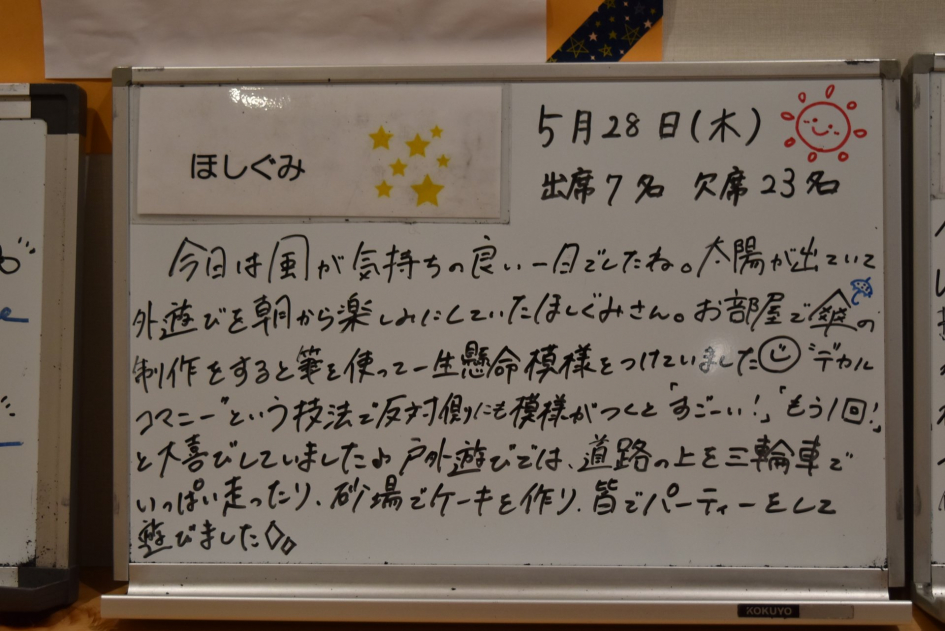 ほしぐみ
5月28日(木)
出席7名 欠席23名
今日は風が気持ちの良い一日でしたね。太陽が出ていて
外遊びを朝から楽しみにしていたほしぐみさん。お部屋で傘の
制作をすると筆を使って一生懸命模様をつけていました “デカル
コマニー”という技法で反対側にも模様がつくと「すごーい!」「もう1回!」
と大喜びしていました♪ 戸外遊びでは、道路の上を三輪車で
いっぱい走ったり、砂場でケーキを作り、皆でパーティーをして
遊びました
KOKUYO